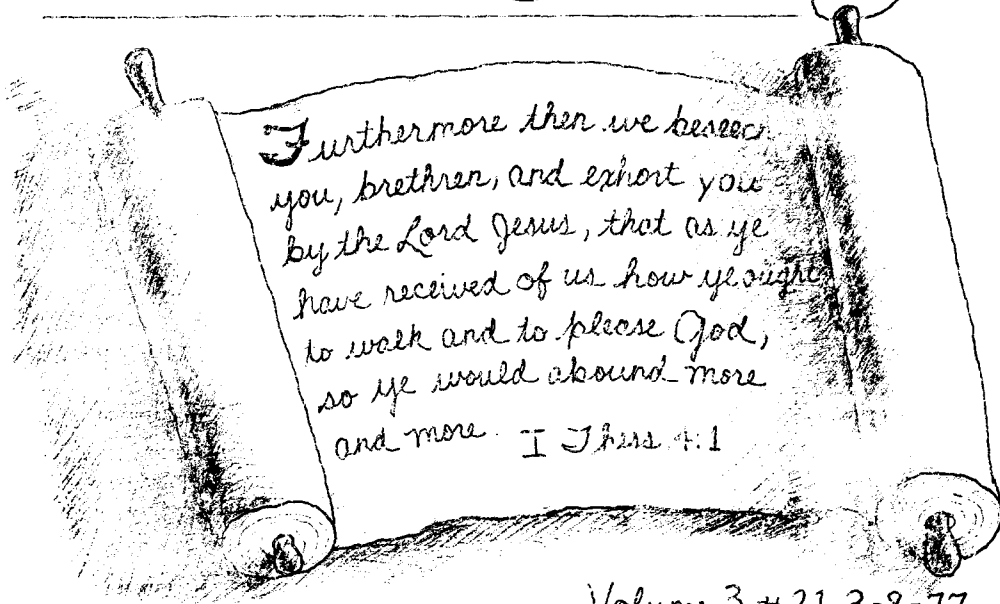 Furthermore then we beseech
you, brethren, and exhort you
by the Lord Jesus, that as ye
have received of us how ye ought
to walk and to please God,
so ye would abound more
and more. I Thess 4:1
Volume 3 # 21 3-9-77